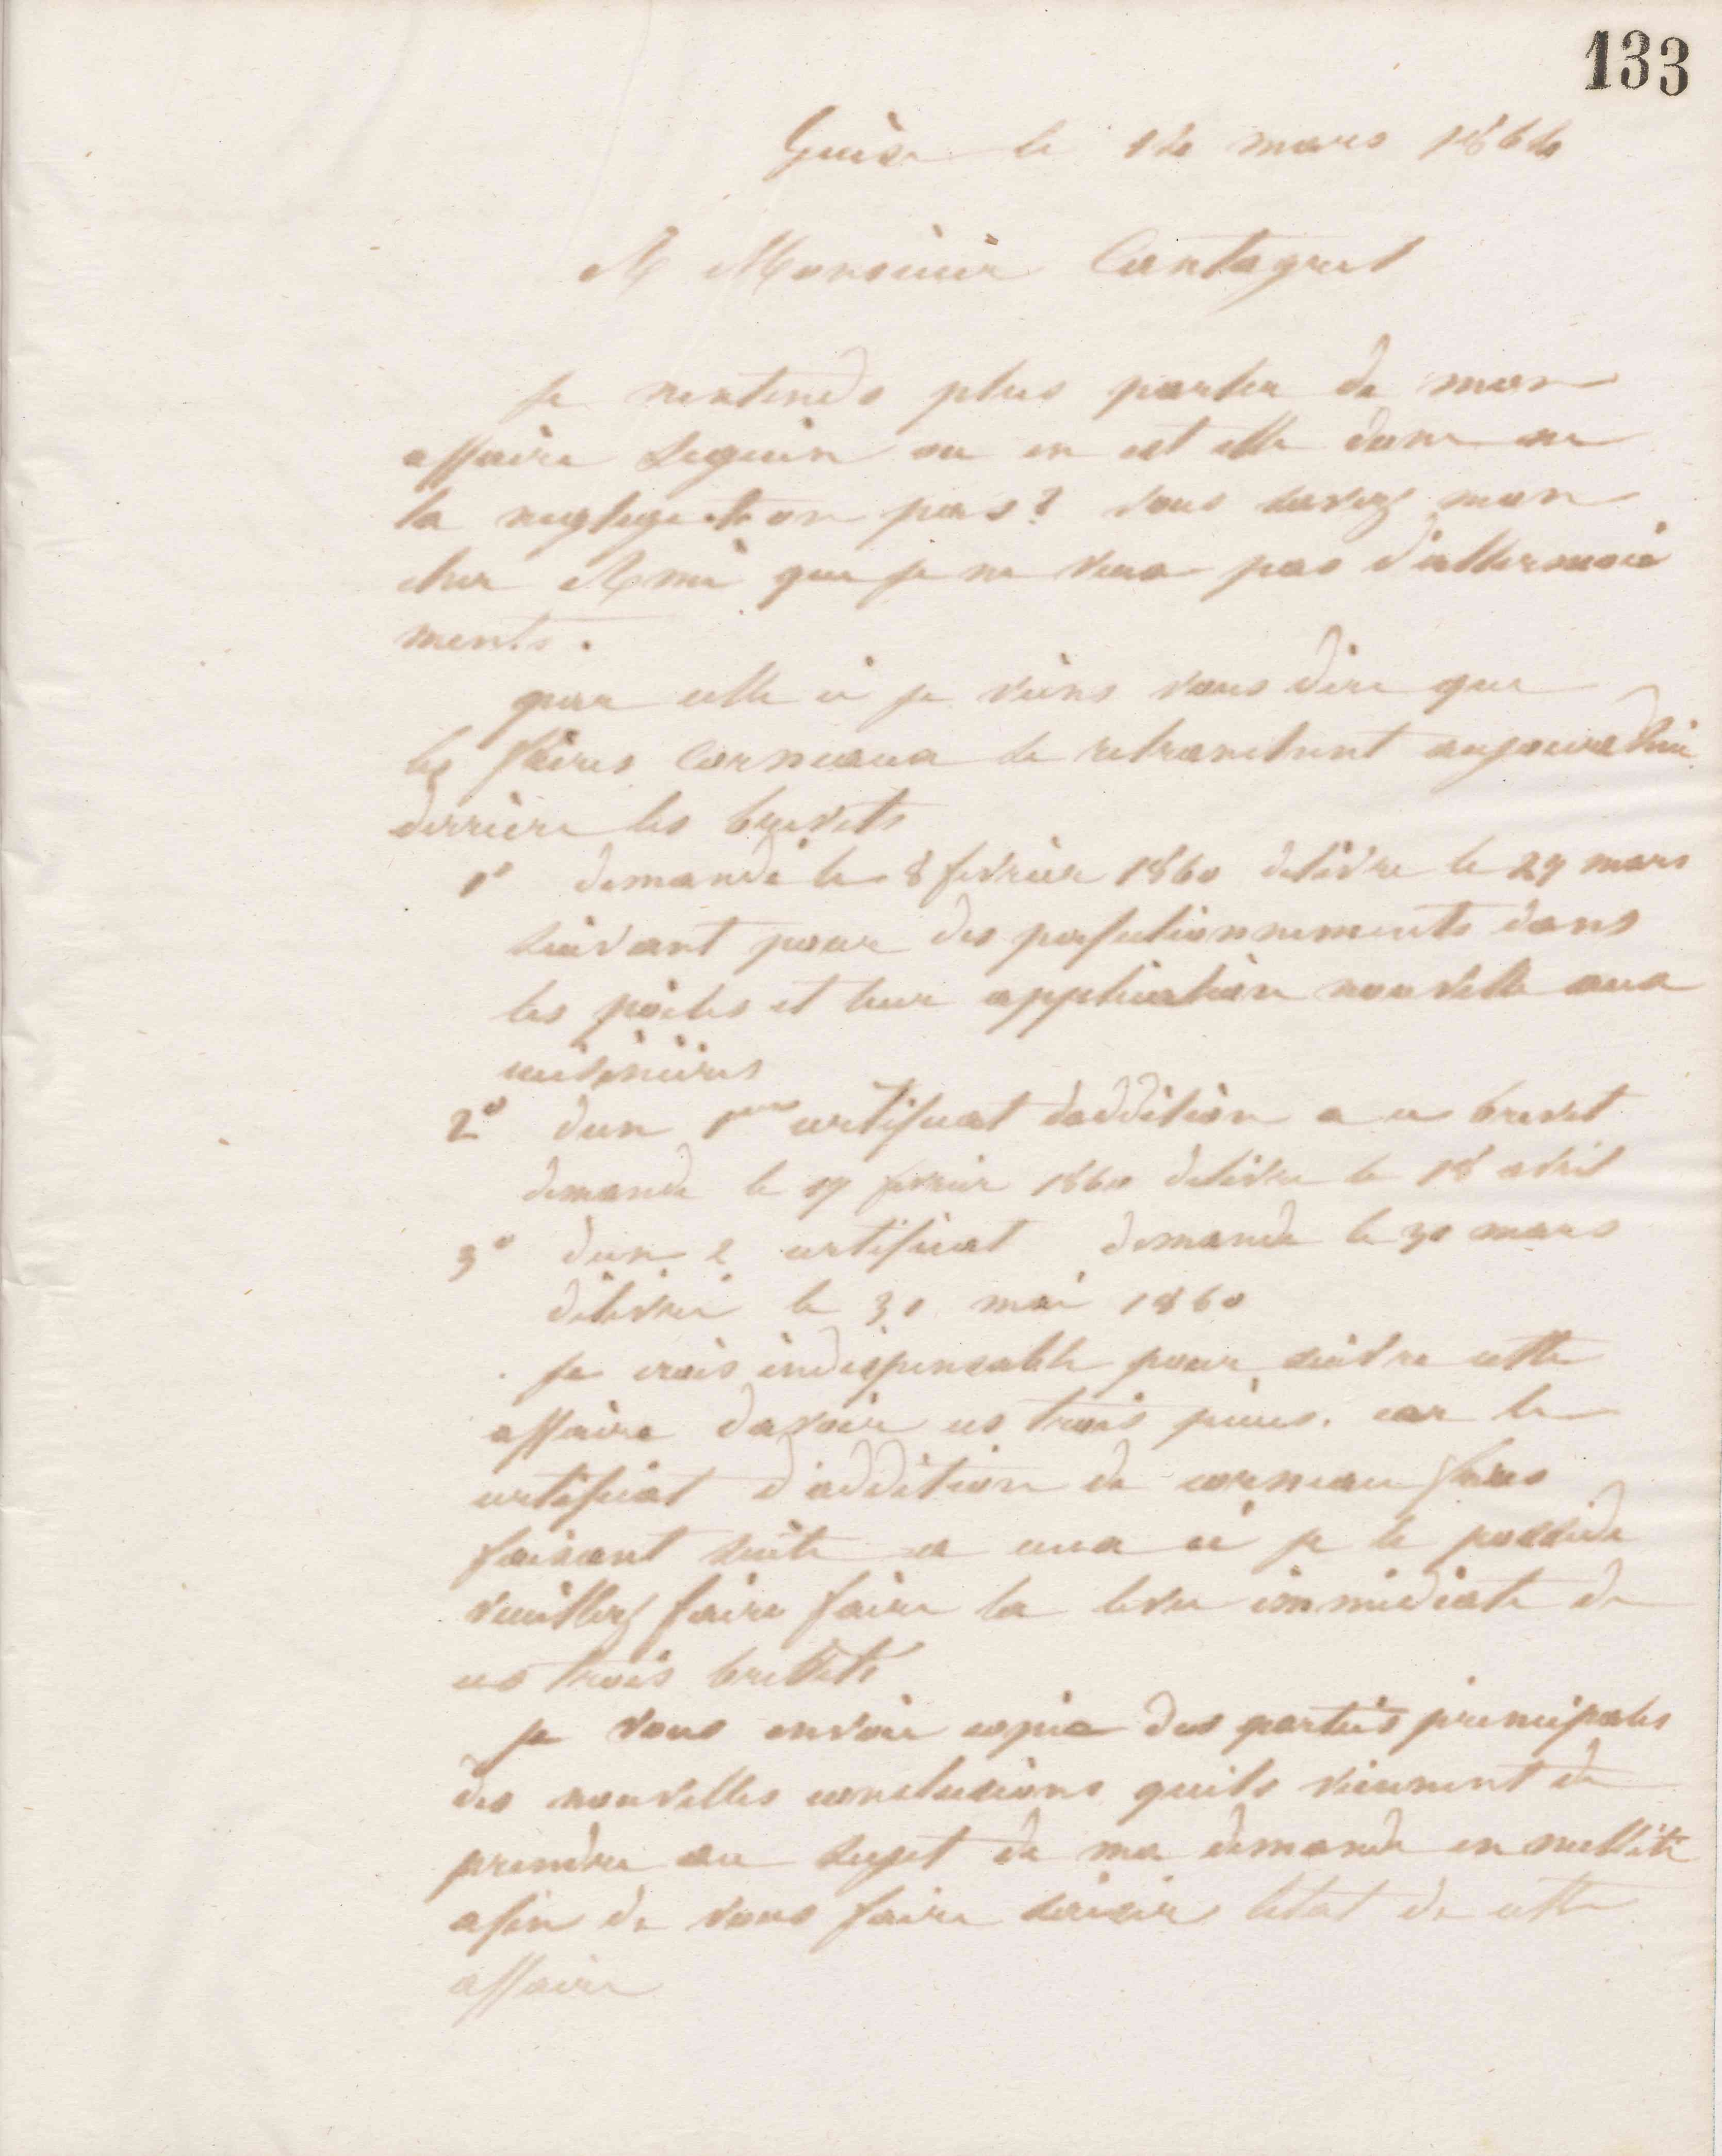 133
Guise le 14 mars 1864
A Monsieur Cantagrel
Je nentends plus parler de mon
affaire Seguin ou en est elle donc ne
la neglige-t-on pas? vous savez mon
cher Ami que je ne veux pas d'attermoie
ments.
par celle ci je viens vous dire que
les frères Corneaux se retranchent aujourdhui
derrière les brevets
1° demandé le 8 fevrier 1860 delivre le 29 mars
suivant pour des perfectionnements dans
les poeles et leur application nouvelle aux
cuisinières
2° dun 1er certificat daddition a ce brevet
demande le 17 fevrier 1860 delivre le 18 avril
3° dun 2 certificat demande le 30 mars
délivré le 30 mai 1860
Je crois indispensable pour suivre cette
affaire davoir ces trois pieces. car le
certificat d'addition de corneau frères
faisant suite a ceux ci je le possede
veuillez faire faire la levee immediate de
ces trois brevets
Je vous envoie copie des parties principales
des nouvelles conclusions quils viennent de
prendre au sujet de ma demande en nullité
afin de vous faire saisir letat de cette
affaire